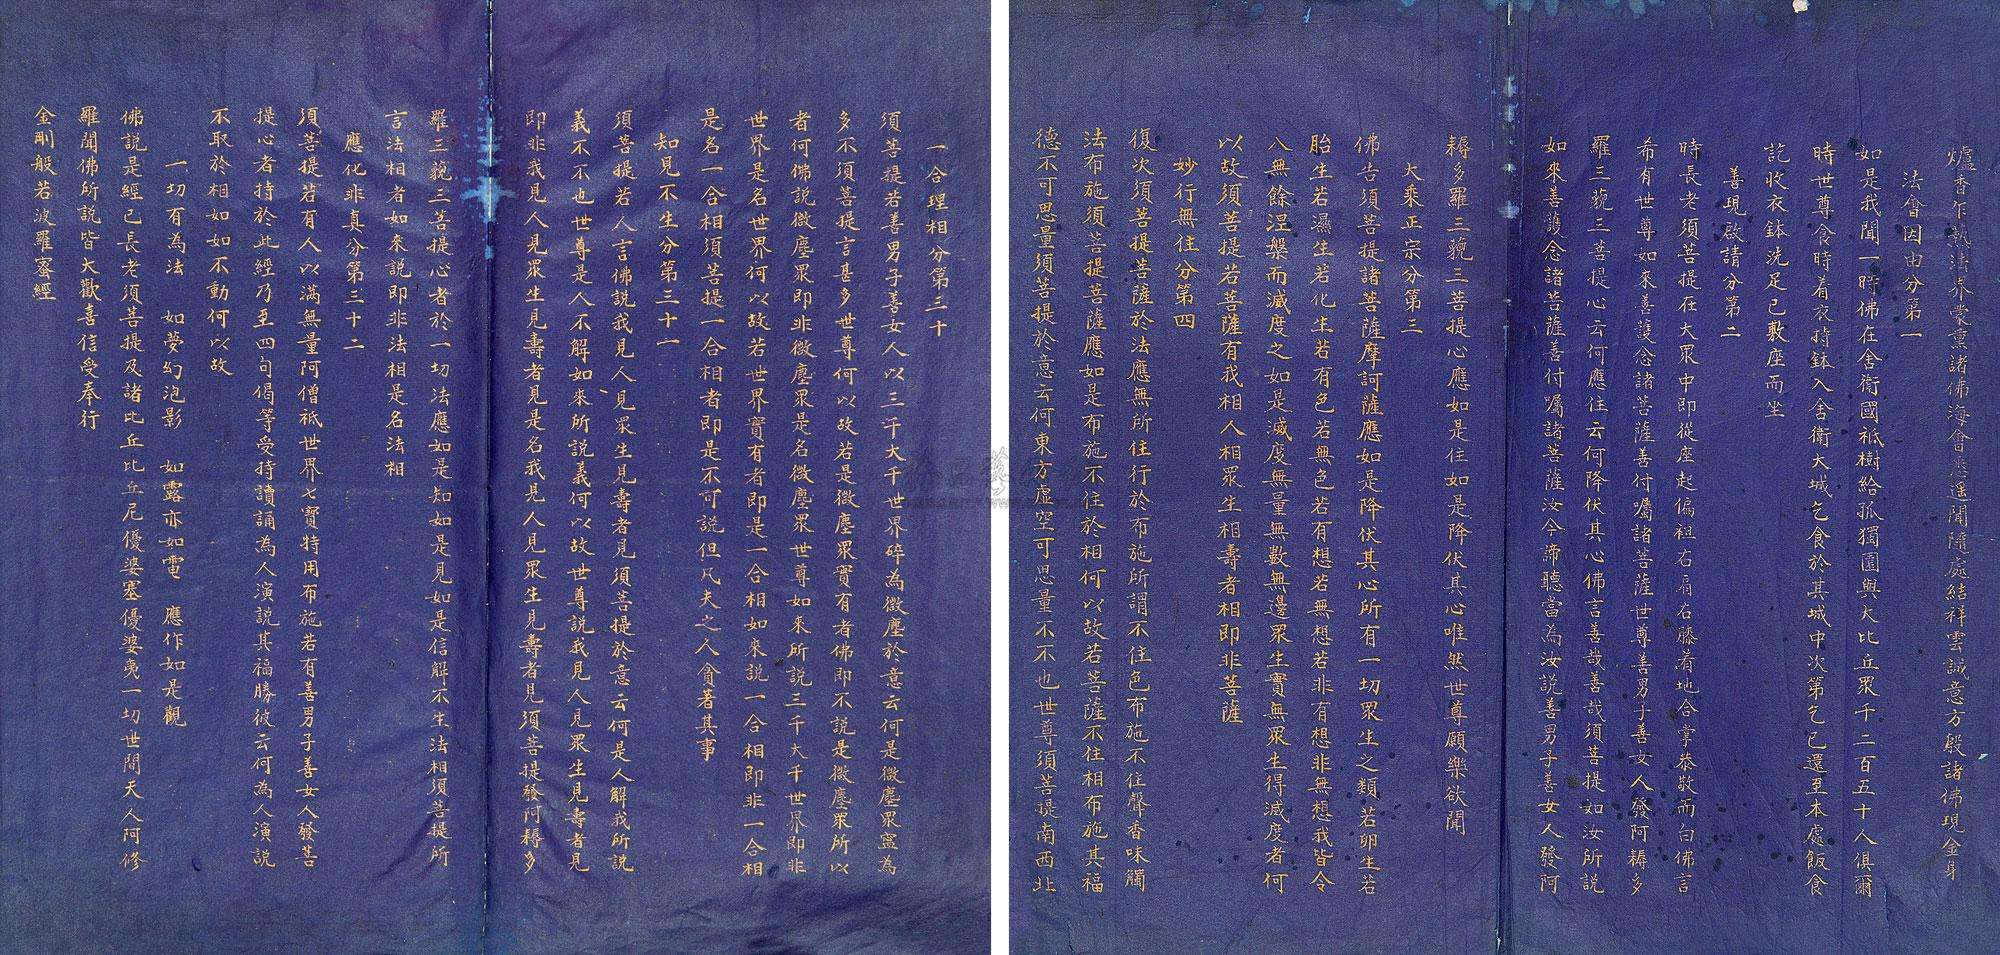 爐香乍熱法界蒙熏諸佛海會悉遥聞隨處結祥雲誠意方殷諸佛現金身
法會因由分第一
如是我聞一時佛在舍衛國祇樹給孤獨園與大比丘眾千二百五十人俱爾
時世尊食時着衣持鉢入舍衛大城乞食於其城中次第乞已還至本處飯食
訖收衣鉢洗足已敷座而坐
善現啟請分第二
時長老須菩提在大眾中即從座起偏袒右肩右膝着地合掌恭敬而白佛言
希有世尊如來善護念諸菩薩善付囑諸菩薩世尊善男子善女人發阿耨多
羅三藐三菩提心云何應住云何降伏其心佛言善哉善哉須菩提如汝所説
如來善護念諸菩薩善付囑諸菩薩汝今諦聽當為汝説善男子善女人發阿
耨多羅三藐三菩提心應如是住如是降伏其心唯然世尊願樂欲聞
大乘正宗分第三
佛告須菩提諸菩薩摩訶薩應如是降伏其心所有一切眾生之類若卵生若
胎生若濕生若化生若有色若無色若有想若無想若非有想非無想我皆令
入無餘涅槃而滅度之如是滅度無量無數無邊眾生實無眾生得滅度者何
以故須菩提若菩薩有我相人相眾生相壽者相即非菩薩
妙行無住分第四
復次須菩提菩薩於法應無所住行於布施所謂不住色布施不住聲香味觸
法布施須菩提菩薩應如是布施不住於相何以故若菩薩不住相布施其福
德不可思量須菩提於意云何東方虛空可思量不不也世尊須菩提南西北
一合理相分第三十
須菩提若善男子善女人以三千大千世界碎為微塵於意云何是微塵眾寧為
多不須菩提言甚多世尊何以故若是微塵眾實有者佛即不説是微塵眾所以
者何佛説微塵眾即非微塵眾是名微塵眾世尊如來所説三千大千世界即非
世界是名世界何以故若世界實有者即是一合相如來説一合相即非一合相
是名一合相須菩提一合相者即是不可説但凡夫之人貪著其事
知見不生分第三十一
須菩提若人言佛説我見人見眾生見壽者見須菩提於意云何是人解我所説
義不不也世尊是人不解如來所説義何以故世尊説我見人見眾生見壽者見
即非我見人見眾生見壽者見是名我見人見眾生見壽者見須菩提發阿耨多
羅三藐三菩提心者於一切法應如是知如是見如是信解不生法相須菩提所
言法相者如來説即非法相是名法相
應化非真分第三十二
須菩提若有人以滿無量阿僧祇世界七寶持用布施若有善男子善女人發菩
提心者持於此經乃至四句偈等受持讀誦為人演説其福勝彼云何為人演説
不取於相如如不動何以故
一切有為法　如夢幻泡影　如露亦如電　應作如是觀
佛説是經已長老須菩提及諸比丘比丘尼優婆塞優婆夷一切世間天人阿修
羅聞佛所説皆大歡喜信受奉行
金剛般若波羅蜜經